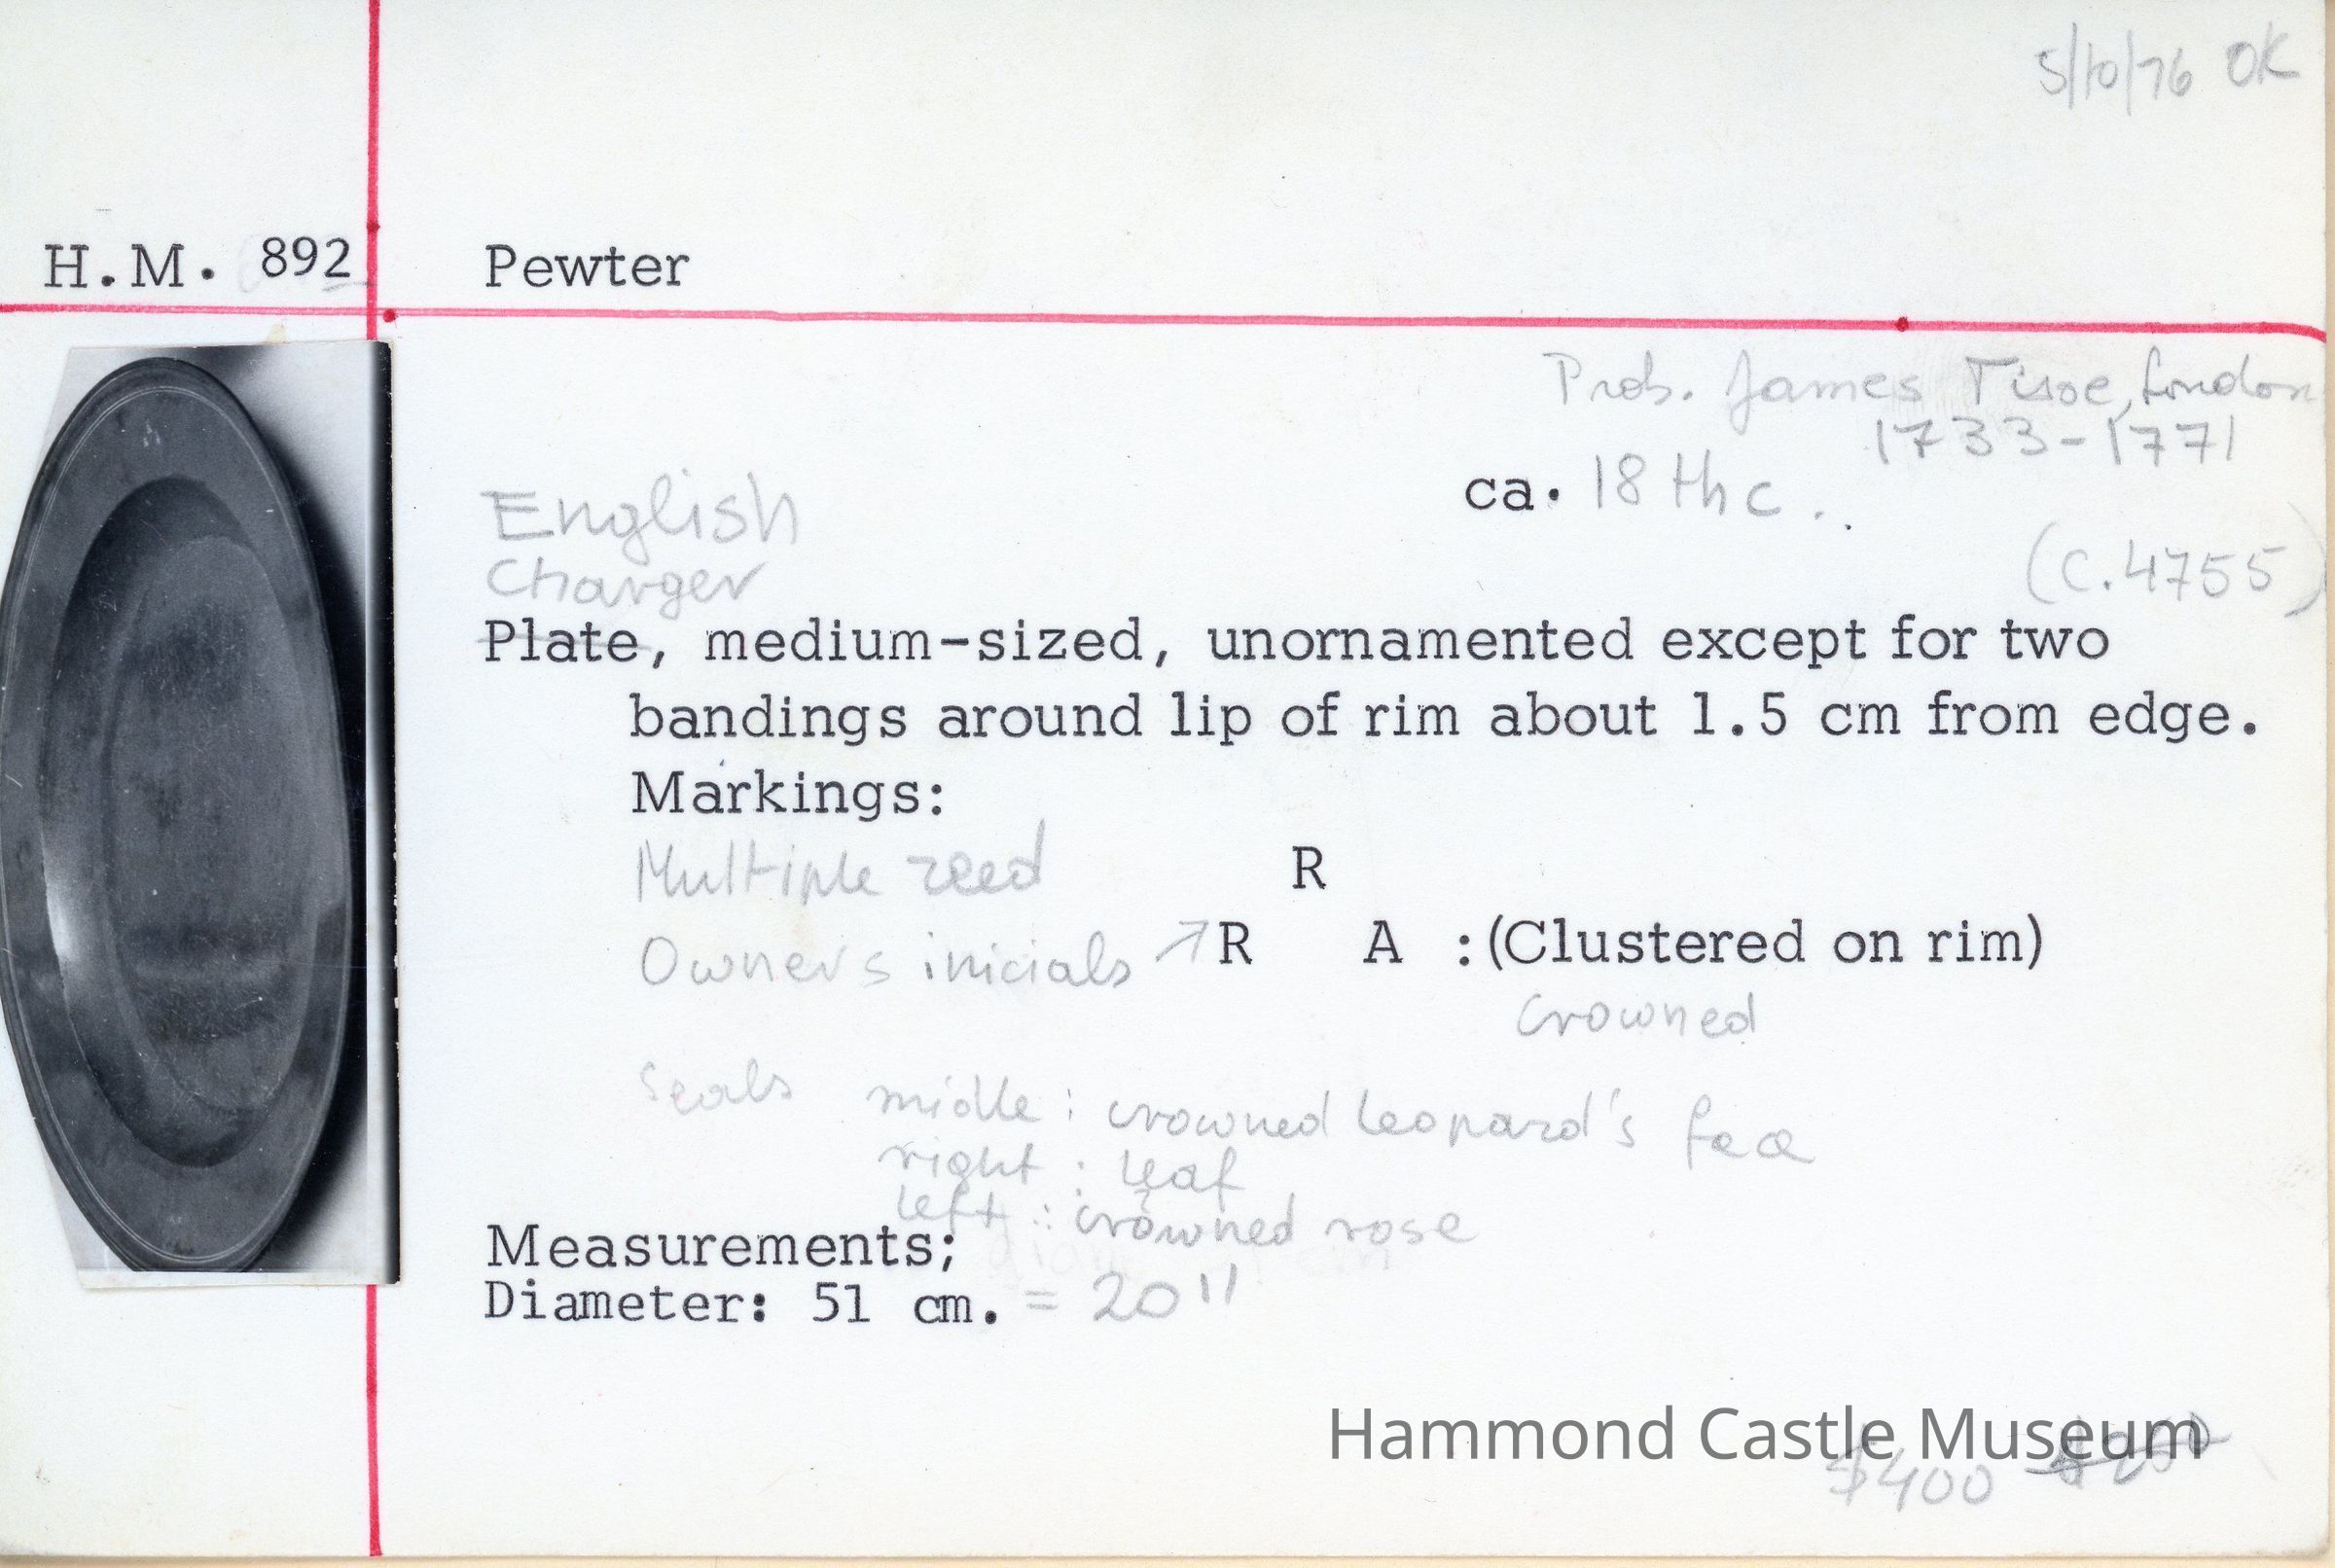 5/10/76 OK
H.M. 892
Pewter
Prob. James Tisoe, London
1733-1771
ca. 18th c.
English
(C.4755)
Charger
Plate, medium-sized, unornamented except for two
bandings around lip of rim about 1.5 cm from edge.
Markings:
Multiple reed
R
Owners inicials ↗ R A :(Clustered on rim)
crowned
Seals midle: crowned leopard's face
right: leaf
left: crowned rose
Measurements;
Diameter: 51 cm. = 20"
Hammond Castle Museum
$400